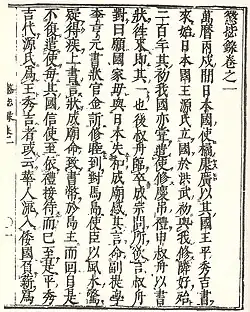 懲毖錄卷之一
萬曆丙戌間日本國使橘康廣以其國王平秀吉書
來始日本國王源氏立國於洪武初與我修隣好殆
二百年其初我國亦嘗遣使修慶弔禮申叔舟以書
狀往來即其一也後叔舟臨卒成宗問所欲言叔舟
對曰願國家毋與日本失和成廟感其言命副提學
李亨元書狀官金訢修睦到對馬島使臣以風水驚
疑得疾上書言狀成廟命致書幣於島主而回自是
不復遣使每其國信使至依禮接待而已至是平秀
吉代源氏爲王秀吉者或云華人流入倭國負薪爲
懲毖錄卷一